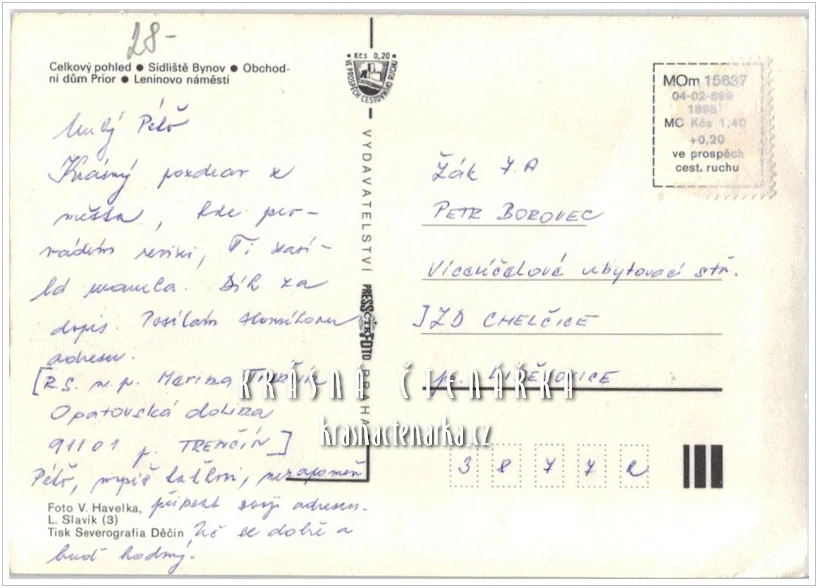 28-
Celkový pohled ● Sídliště Bynov ● Obchod-
ní dům Prior ● Leninovo náměstí
Milý Péťo
Krásný pozdrav z
města, kde pro-
vádím revizi, Ti
mamča. Dík za
dopis. Posílám
adresu.
[R.S. n.p. Merina Trenčín
Opatovská dolina
91101 p. TRENČÍN]
Péťo, napiš taťkovi, nezapomeň
připsat svoji adresu.
Uč se dobře a
buď hodný.
Foto V. Havelka,
L. Slavík (3)
Tisk Severografia Děčín
Kčs 0,20
VE PROSPĚCH CESTOVNÍHO RUCHU
VYDAVATELSTVÍ PRESSFOTO PRAHA
ČTK
MOm 15637
04-02-689
1898
MC Kčs 1,40
+0,20
ve prospěch
cest. ruchu
Žák 7.A
PETR BOROVEC
Víceúčelové ubytovací stř.
JZD CHELČICE
p. LIBĚJOVICE
38772
KRÁSNÁ ČTENÁŘKA
krasnactenarka.cz